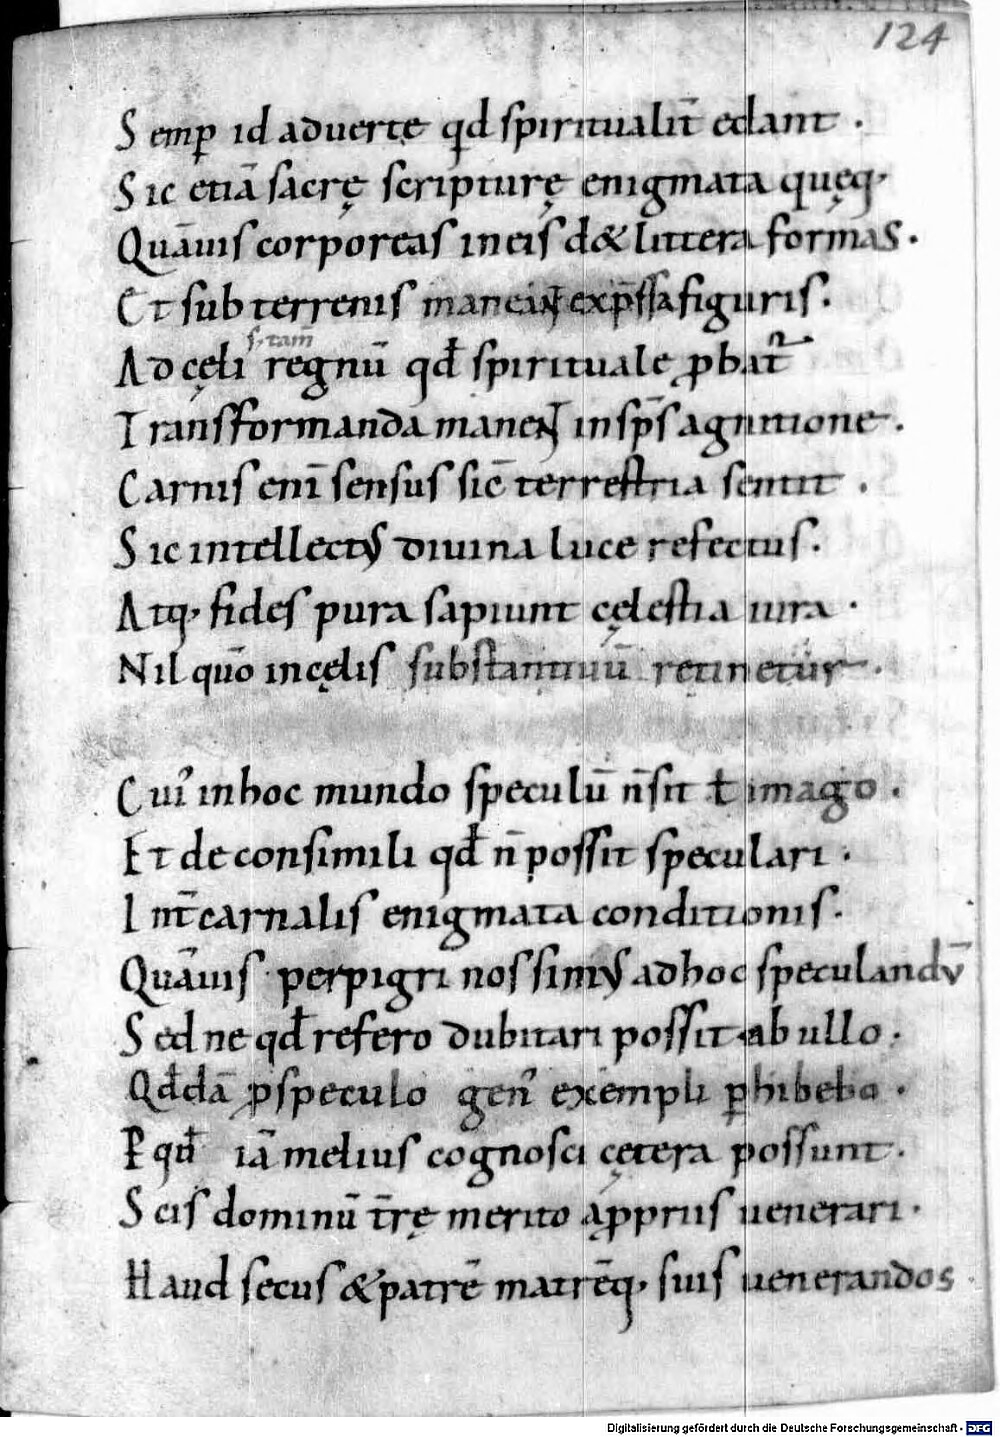 124
Semp̲ id aduertę qđ spiritualit̄ edant .
Sic etiā sacrę scripturę enigmata quęq;
Quāuis corporeas in eis d& littera formas .
Et sub terrenis maneant exp̄ssa figuris .
s. tam̄
Ad cęli regnū qđ spirituale ꝓbat᷑
Transformanda manent in sp̄s agnitione .
Carnis eni̅ sensus sic̄ terrestria sentit .
Sic intellectus diuina luce refectus .
Atq; fides pura sapiunt cęlestia iura .
Nil quō in cęlis substantiuū retinetur .
Cui᾽ in hoc mundo speculū n̄ sit ł imago .
Et de consimili qđ n̄ possit speculari .
Int̄ carnalis enigmata conditionis .
Quāuis perpigri nos simus ad hoc speculandū
Sed ne qđ refero dubitari possit ab ullo .
Qđdā ꝓ speculo gen᾽ exempli ꝑhibebo .
P qđ iā melius cognosci cętera possunt .
Scis dominū t̄rę merito a ꝓpriis uenerari .
Haud secus & patrē matrēq; suis uenerandos .
Digitalisierung gefördert durch die Deutsche Forschungsgemeinschaft - DFG